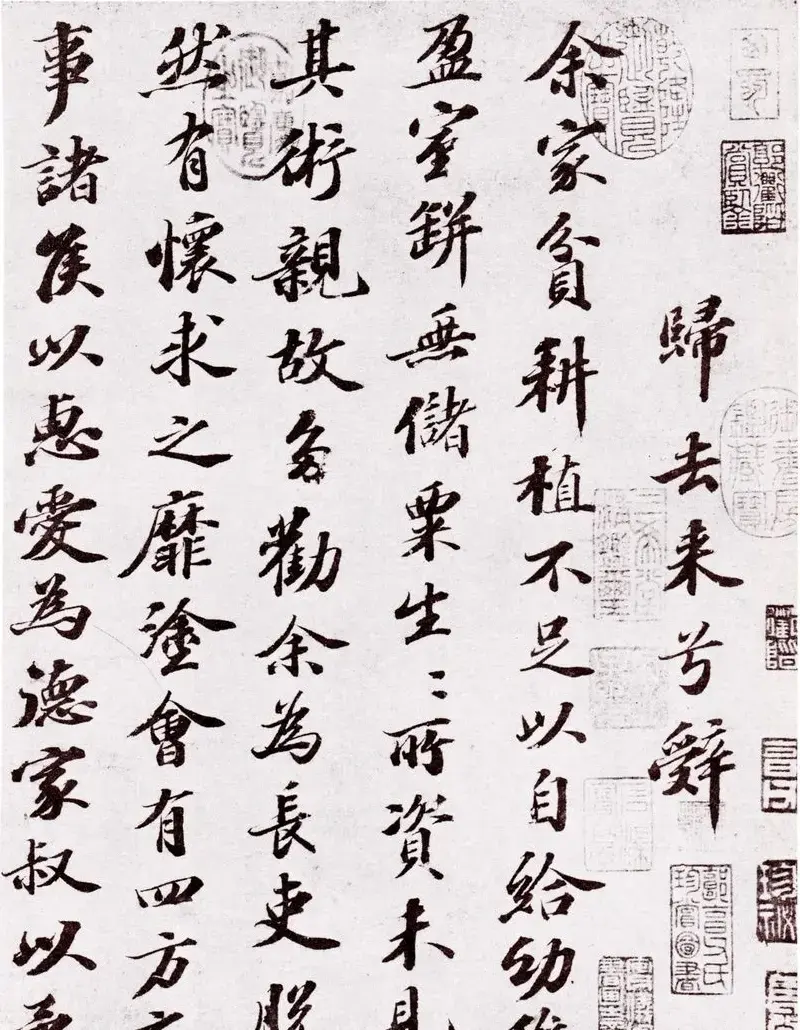 歸去来兮辤
余家貧耕植不足以自給幼
盈室缾無儲粟生〻所資未見
其術親故多勸余為長吏脫
然有懷求之靡塗會有四方
事諸侯以惠愛為德家叔以